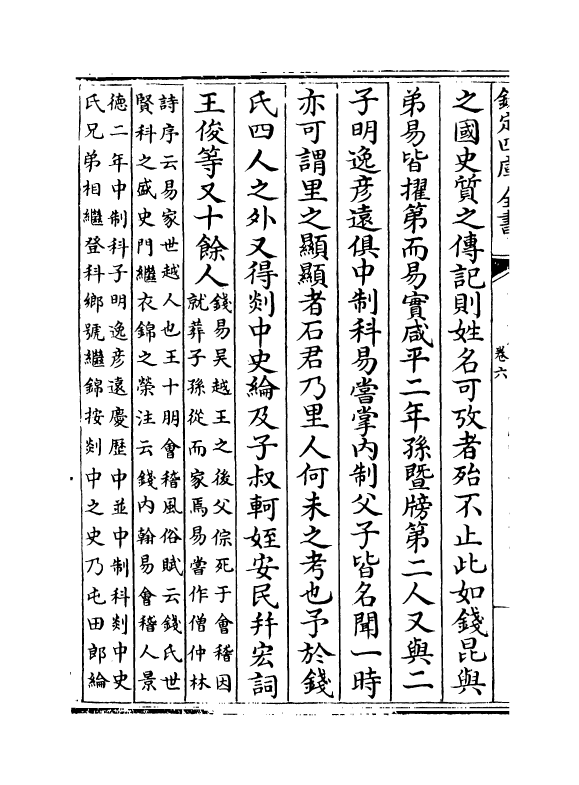 欽定四庫全書
卷六
之國史質之傳記則姓名可攷者殆不止此如錢昆與
弟易皆擢第而易實咸平二年孫暨牓第二人又與二
子明逸彥遠俱中制科易嘗掌內制父子皆名聞一時
亦可謂里之顯顯者石君乃里人何未之考也予於錢
氏四人之外又得剡中史綸及子叔軻姪安民幷宏詞
王俊等又十餘人
錢易吳越王之後父倧死于會稽因
就葬子孫從而家焉易嘗作僧仲林
詩序云易家世越人也王十朋會稽風俗賦云錢氏世
賢科之盛史門繼衣錦之榮注云錢內翰易會稽人景
德二年中制科子明逸彥遠慶歷中並中制科剡中史
氏兄弟相繼登科鄉號繼錦按剡中之史乃屯田郎綸